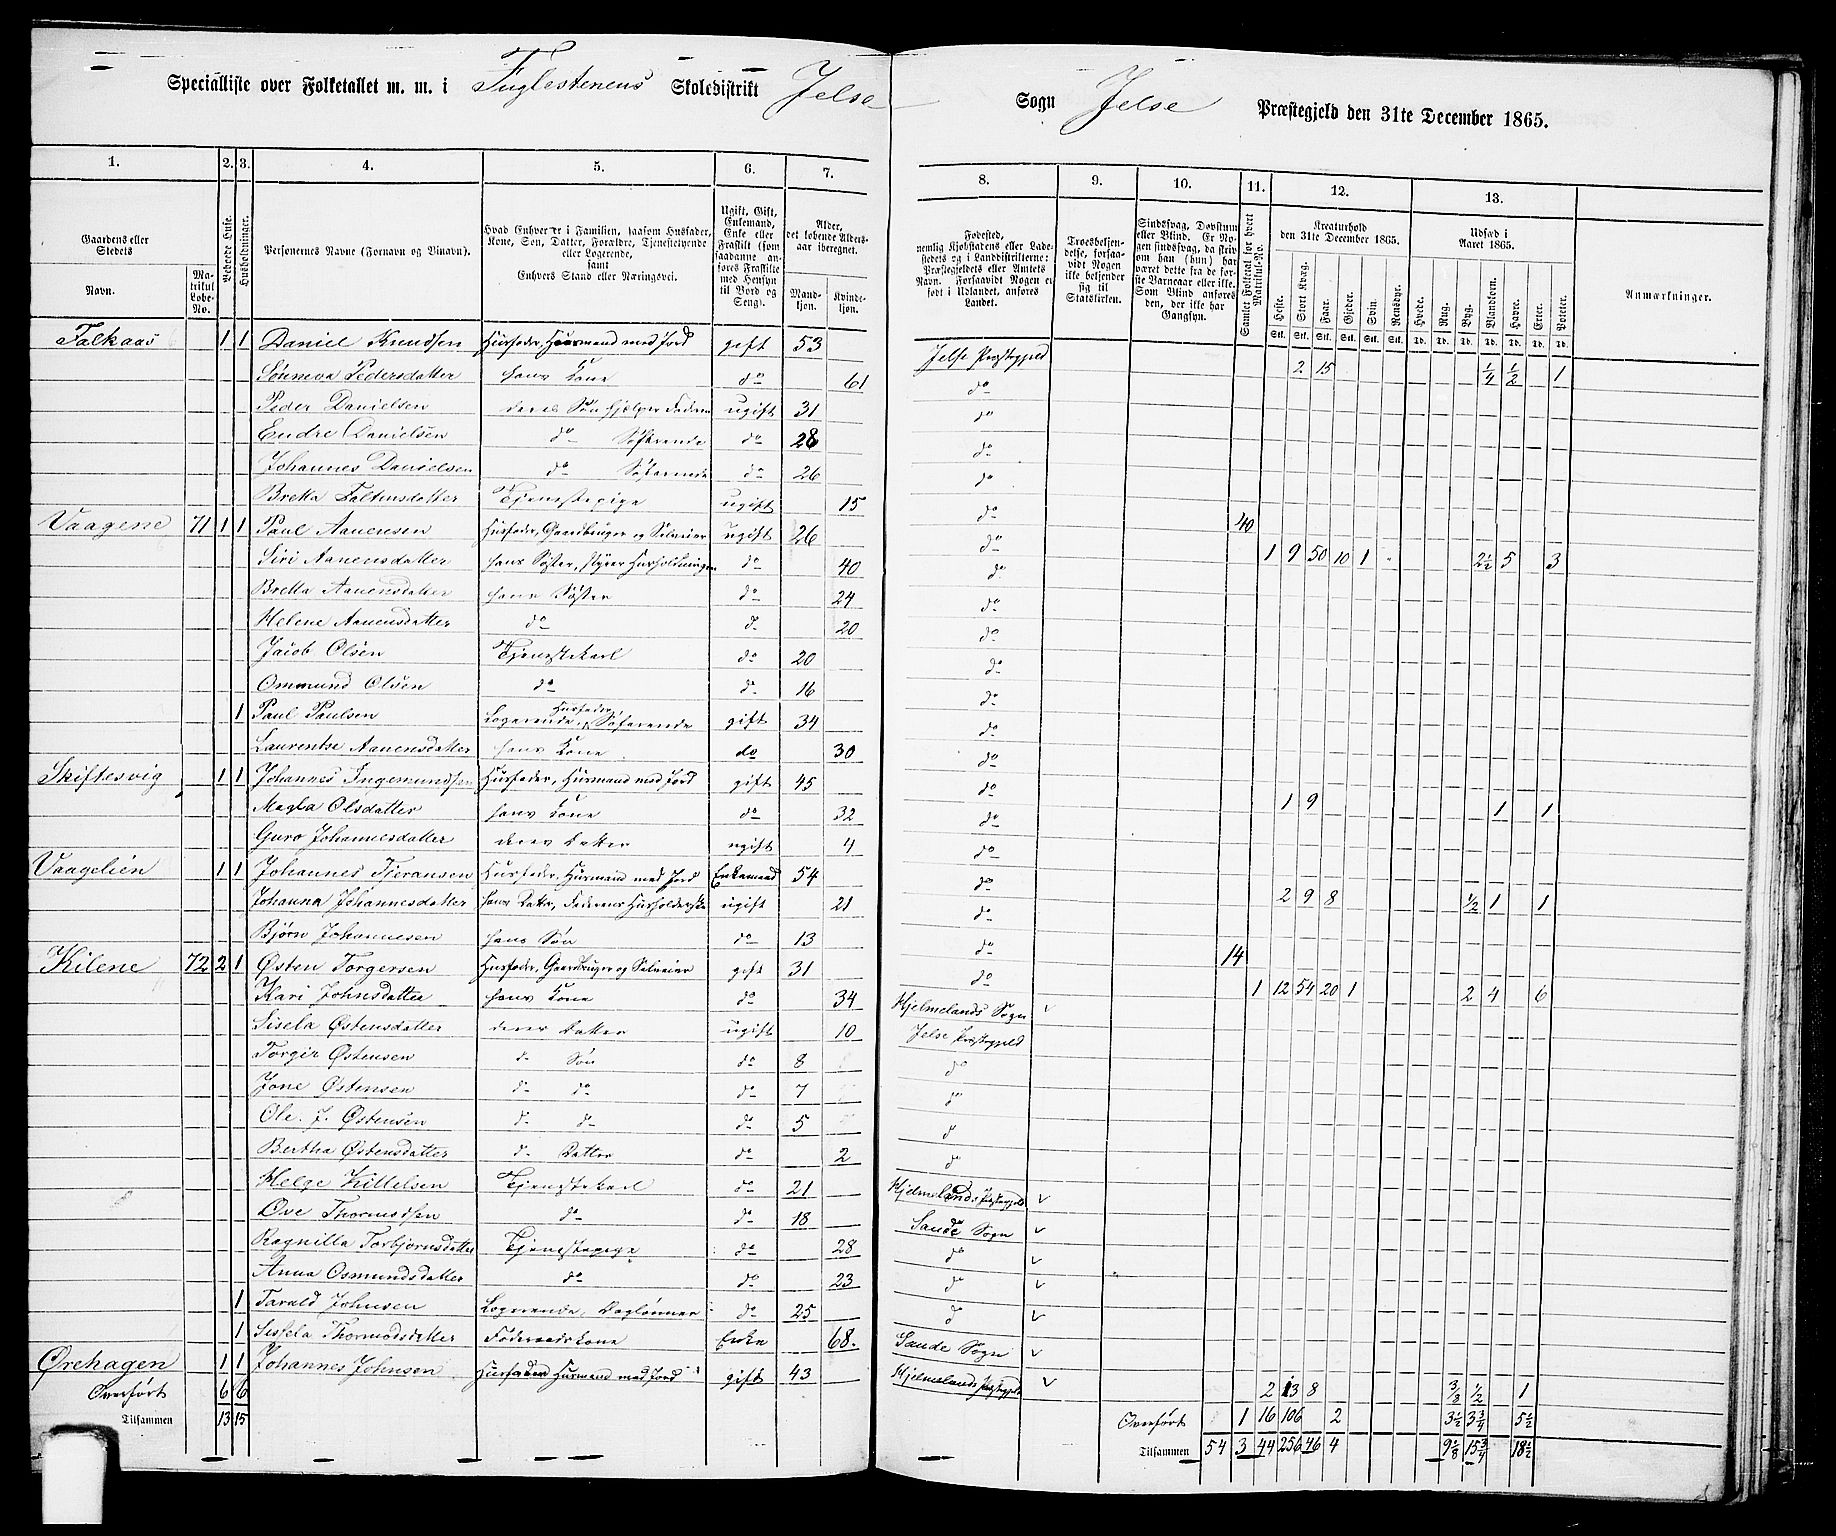 Specialliste over Folketallet m. m. i Fuglestenens Skoledistrikt Jelse Sogn Jelse Præstegjeld den 31te December 1865.
1. 2. 3. 4. 5. 6. 7. 8. 9. 10. 11. 12. 13.
Gaardens eller Stedets Navn. Matrikul Løbe-No. Beboede Huse. Husholdninger. Personernes Navne (Fornavn og Tilnavn). Hvad Enhver er i Familien, saasom Husfader, Kone, Søn, Datter, Forældre, Tjenestetyende eller Logerende, samt Enhvers Stand eller Næringsvei. Ugift, Gift, Enkemand, Enke eller Fraskilt (som saadanne anføres Fraskilte med Hensyn til Bord og Seng). Alder, det løbende Aldersaar iberegnet. Mandkjøn. Kvindekjøn.
Fødested, nemlig Kjøbstadens eller Ladestedets og i Landdistrikterne: Præstegjeldets eller Amtets Navn. Forsaavidt Nogen er født i Udlandet, anføres Landet. Troesbekjendelse, forsaavidt Nogen ikke bekjender sig til Statskirken. Sindssvag, Døvstum eller Blind. Er Nogen sindssvag, da skrives om han (hun) har været dette fra de første Barneaar eller ikke. Som Blind anføres den, der ikke har Gangsyn. Samlet Folketal for hvert Matrikul-No. Kreaturhold den 31te December 1865. Heste. Stort Kvæg. Faar. Gjeder. Svin. Rensdyr. Udsæd i Aaret 1865. Hvede. Rug. Byg. Blandkorn. Havre. Erter. Poteter. Anmærkninger.
Stk. Stk. Stk. Stk. Stk. Stk. Td. Td. Td. Td. Td. Td. Td.
Falkaas 1 1 Daniel Knudsen Husfader, Huusmand med Jord gift 53 Jelse Præstegjeld 2 15 1/4 1/2 1
Sønneva Pedersdatter hans Kone do 61 do
Peder Danielsen deres Søn hjelper Faderen ugift 31 do
Endre Danielsen do Søfarende do 28 do
Johannes Danielsen do Søfarende do 26 do
Bretta Faltinsdatter Tjenestepige ugift 15 do
Vaagene 71 1 1 Paul Aanensen Husfader, Gaardbruger og Selveier ugift 26 do 40 1 9 50 10 1 2½ 5 3
Siri Aanensdatter hans Søster, styrer Husholdningen do 40 do
Bretta Aanensdatter hans Søster do 24 do
Helene Aanensdatter do do 20 do
Jacob Olsen Tjenestekarl do 20 do
Ommund Olsen do do 16 do
1 Paul Paulsen Logerende, Husfader, Søfarende gift 34 do
Laurentse Aanensdatter hans Kone do 30 do
Skiftesvig 1 1 Johannes Ingemundsen Husfader, Husmand med Jord gift 45 do 1 9 1 1
Magla Olsdatter hans Kone do 32 do
Guro Johannesdatter deres Datter ugift 4 do
Vaagelien 1 1 Johannes Tjeransen Husfader, Husmand med Jord Enkemand 54 do 2 9 8 1/2 1 1
Johanna Johannesdatter hans Datter, Faderens Husholderske ugift 21 do
Bjørn Johannesen hans Søn do 13 do 14
Kilene 72 2 1 Østen Torgersen Husfader, Gaardbruger og Selveier gift 31 do 1 12 54 20 1 2 4 6
Kari Johnsdatter hans Kone do 34 Hjelmelands Sogn
Sisela Østensdatter deres Datter ugift 10 Jelse Præstegjeld
Torger Østensen d- Søn do 8 do
Jone Østensen d- do do 7 do
Ole J. Østensen d- d- do 5 d
Bertha Østensdatter d- Datter do 2 do
Helge Kittelsen Tjenestekarl do 21 Hjelmelands Præstegjeld
Ove Thormodsen do do 18 do Sande Sogn
Ragnilla Torbjornsdatter Tjenestepige do 28 do
Anna Osmundsdatter do do 23 do
1 Tarald Johnsen Logerende, Daglønner do 25 do
1 Sissela Thormodsdatter Føderaadskone Enke 68. Sande Sogn
Ørehagen 1 1 Johannes Johnsen Husfader Husmand med Jord gift 43 Hjelmelands Præstegjeld 2 13 8 1/2 1
Overført 6 6 Overført 1 16 106 2 3½ 3¾ 5½
Tilsammen 13 15 Tilsammen 54 3 44 256 46 4 9⅛ 15¾ 18½